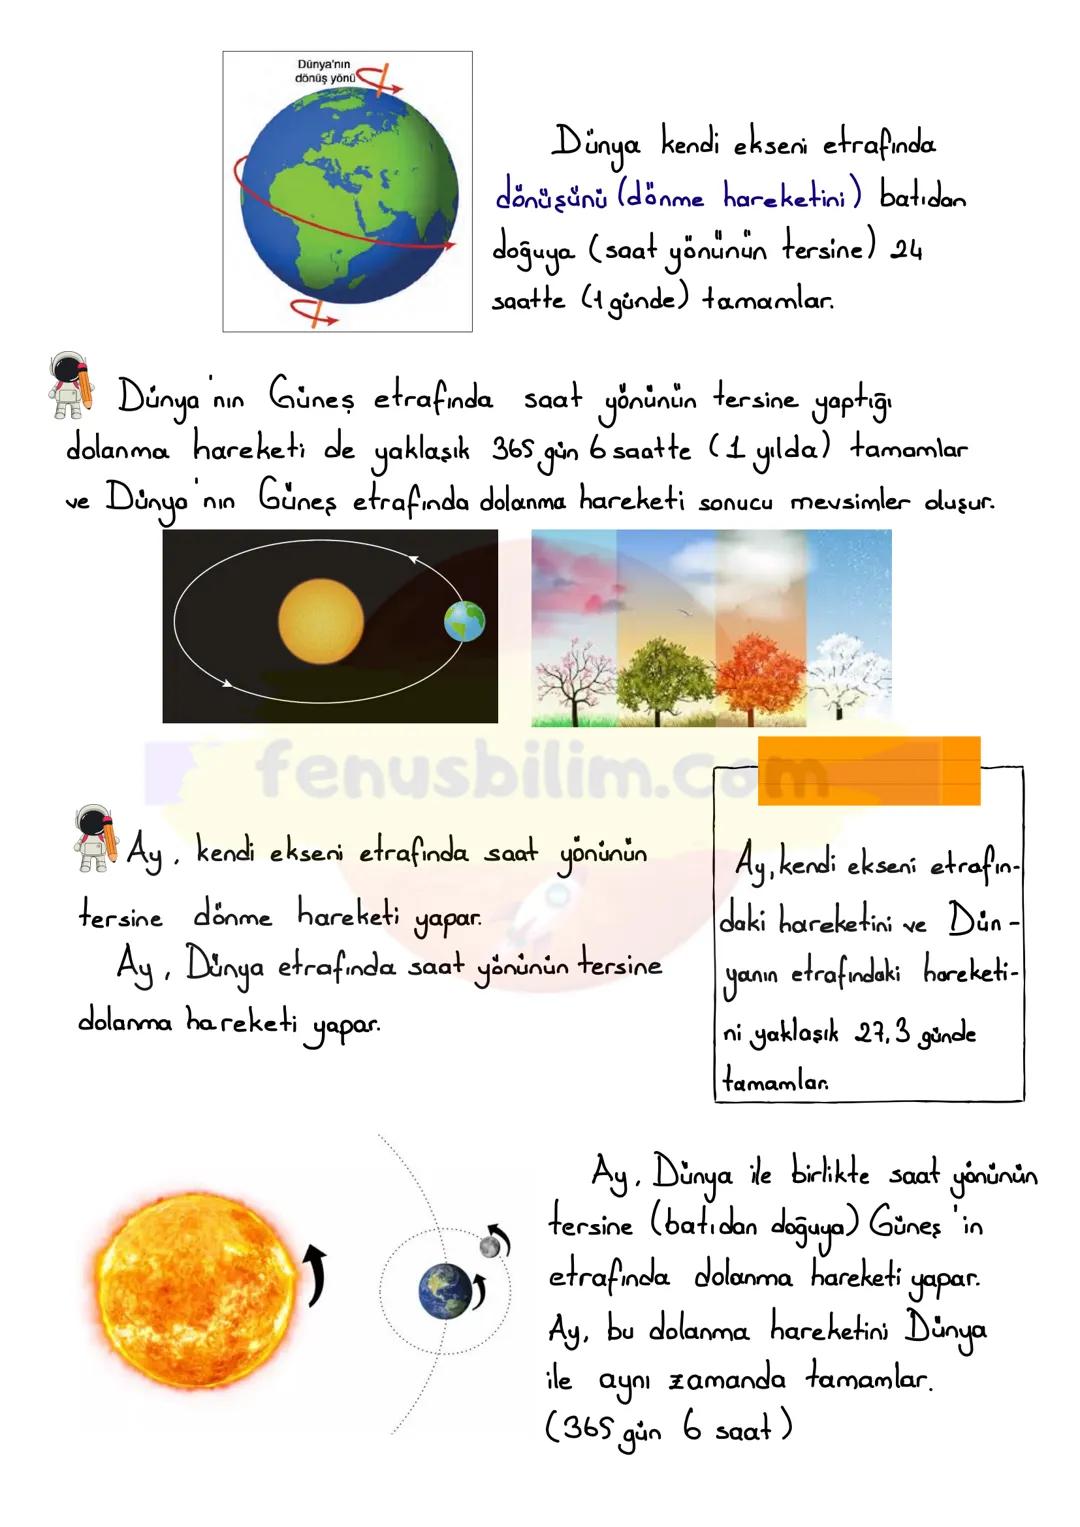 Dünya'nın
dönüş yönü
Dünya kendi ekseni etrafında
dönüşünü (dönme hareketini) batıdan
doğuya (saat yönünün tersine) 24
saatte (1 günde) tamamlar.
Dünya'nın Güneş etrafında saat yönünün tersine yaptığı
dolanma hareketi de yaklaşık 365 gün 6 saatte (1 yılda) tamamlar
ve Dünya'nın Güneş etrafında dolanma hareketi sonucu mevsimler oluşur.
fenusbilim.com
Ay, kendi ekseni etrafında saat yönünün
tersine dönme hareketi yapar.
Ay, Dünya etrafında saat yönünün tersine
dolanma hareketi yapar.
Ay, kendi ekseni etrafın-
daki hareketini ve Dün-
yanın etrafındaki hareketi-
ni yaklaşık 27,3 günde
tamamlar.
Ay, Dünya ile birlikte saat yönünün
tersine (batıdan doğuya) Güneş'in
etrafında dolanma hareketi yapar.
Ay, bu dolanma hareketini Dünya
ile aynı zamanda tamamlar.
(365 gün 6 saat)